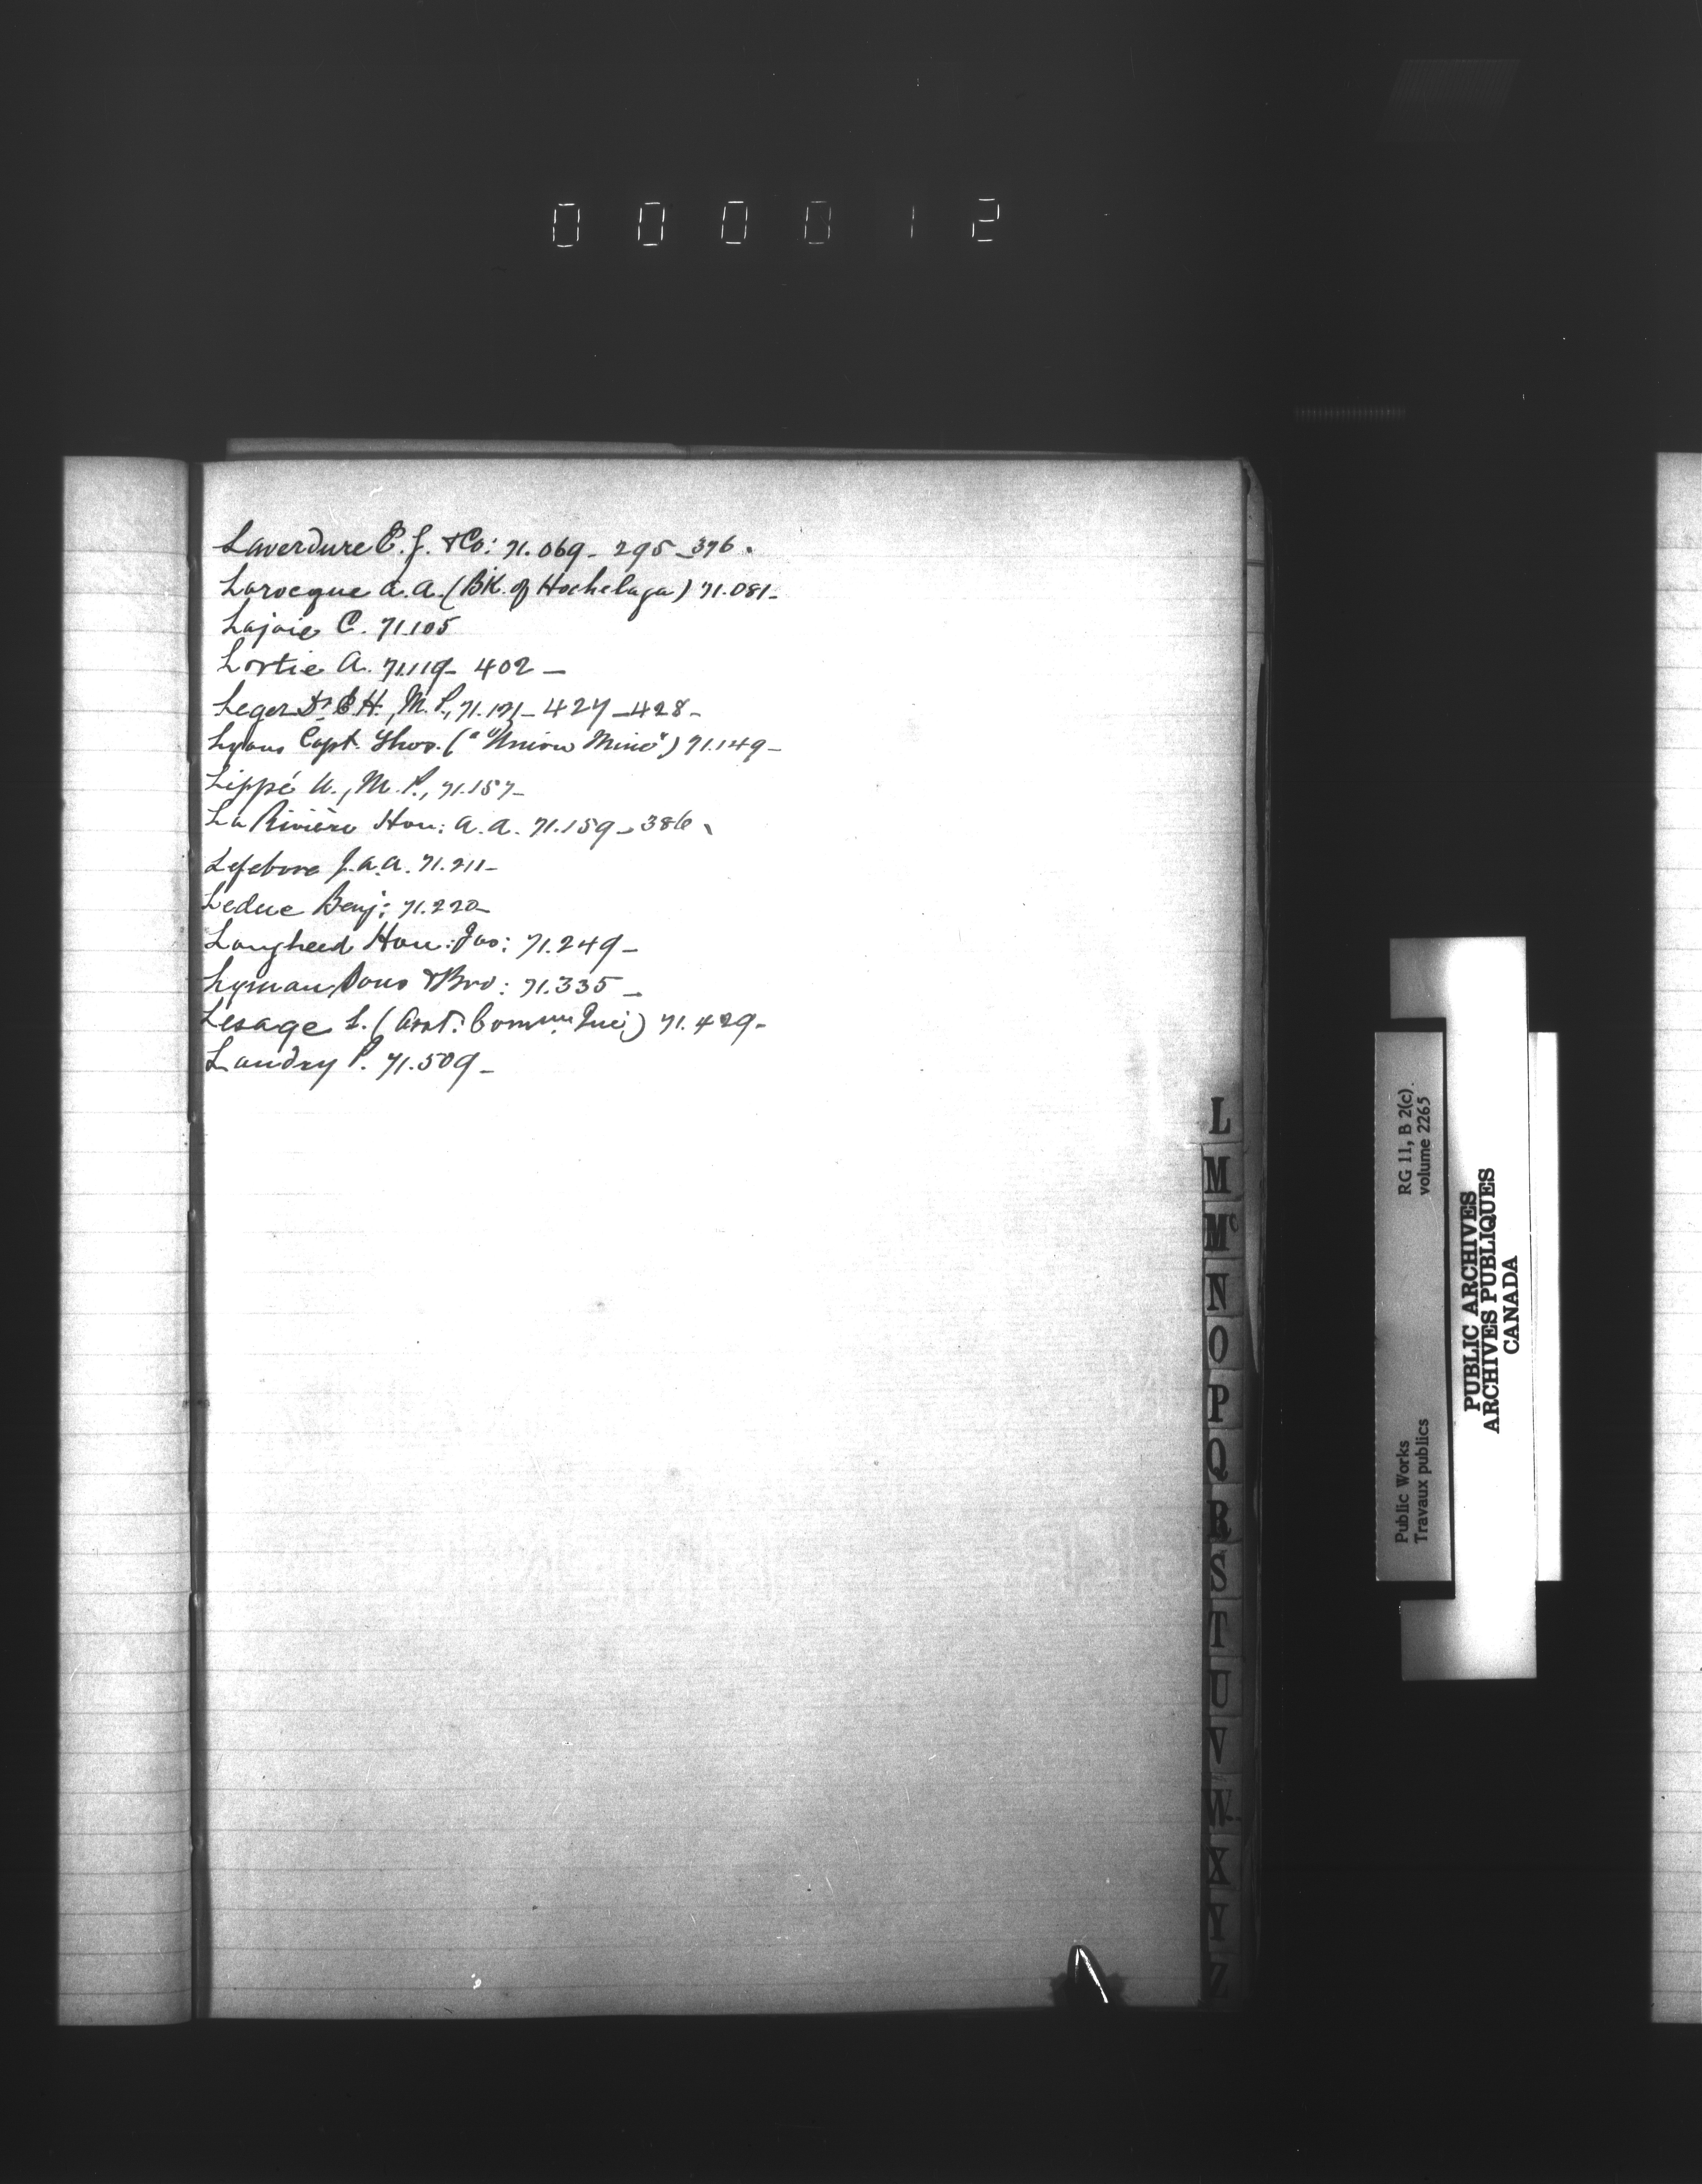 000012
Laverdure E. J. & Co: 71.069 - 295 - 376.
Larocque A. A. (BK. of Hochelaga) 71.081 -
Lajoie C. 71.105
Lortie A. 71.119 - 402 -
Leger Dr. E. H., M. P., 71.121 - 427 - 428 -
Lyons Capt. Thos. ("Union Mine") 71.149 -
Lippé U., M. P., 71.157 -
La Rivière Hon: A. A. 71.159 - 386.
Lefebvre J. A. A. 71.211 -
Leduc Benj: 71.220 -
Lougheed Hon: Jas: 71.249 -
Lyman Sons & Bro: 71.335 -
Lesage S. (Asst: Qué) 71.429 -
Landry P. 71.509 -
L
M
Mc
N
O
P
Q
R
S
T
U
V
W.
X
Y
Z
Public Works RG 11, B 2(c).
Travaux publics volume 2265
PUBLIC ARCHIVES
ARCHIVES PUBLIQUES
CANADA